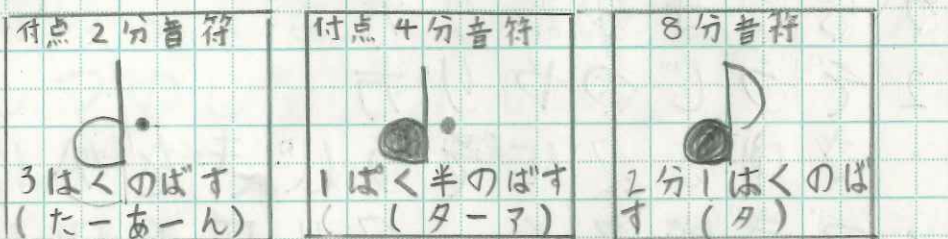 付点2分音符
3はくのばす
(たーあーん)
付点4分音符
1ぱく半のばす
(ターア)
8分音符
2分1はくのば
す (タ)